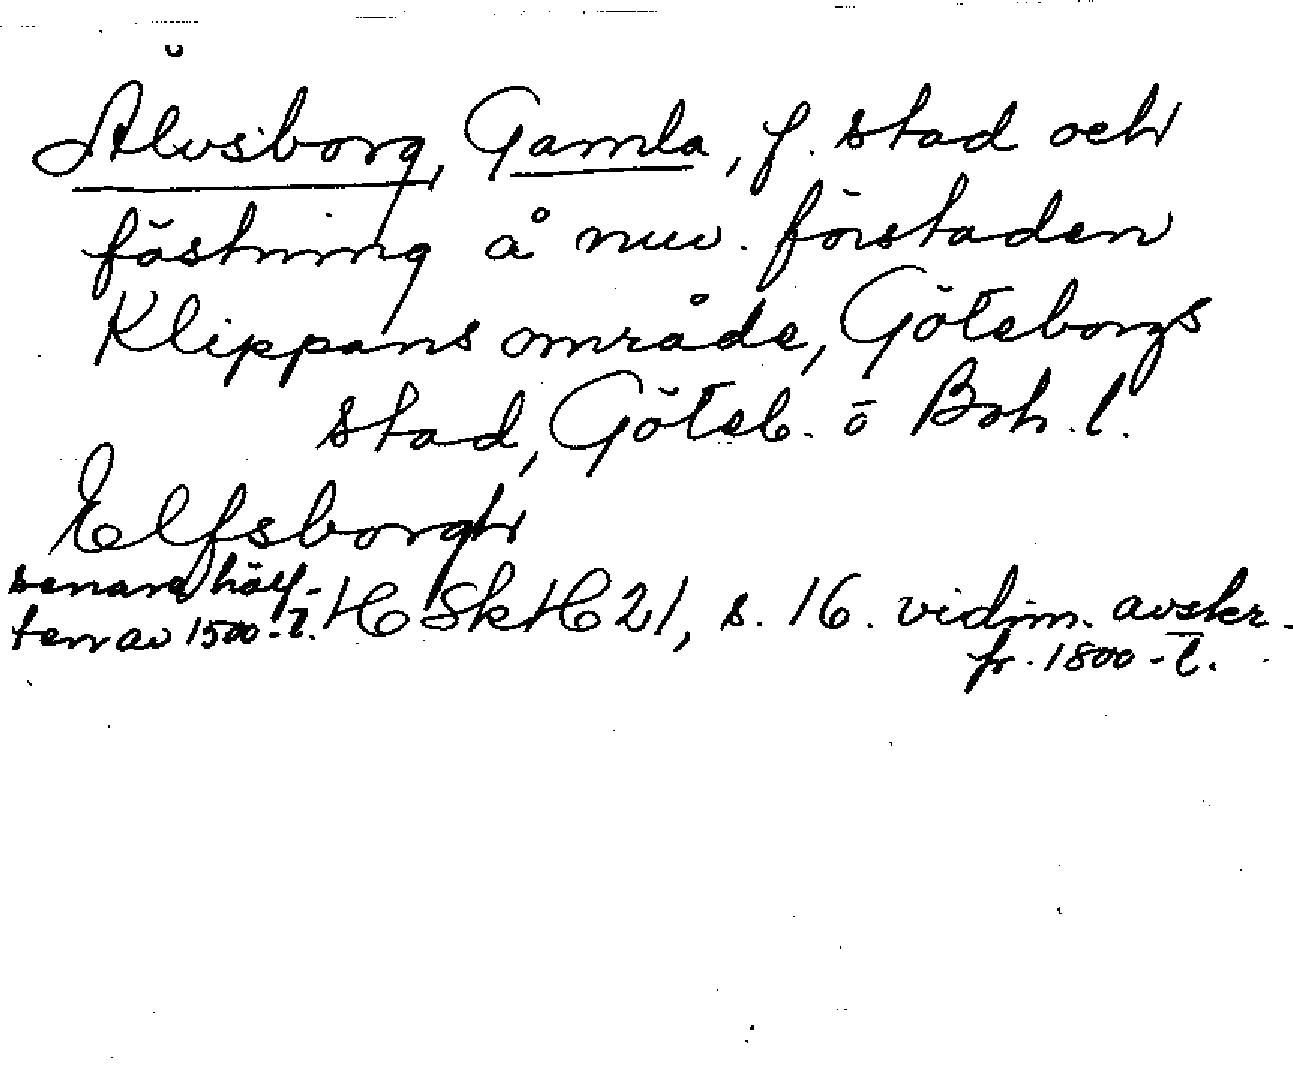 Älvsborg, Gamla, f. stad och
fästning å nuv. förstaden
Klippans område, Göteborgs
stad, Göteb. o Boh. l.
Elfsborgh
senare hälf-
ten av 1500-t. HSkH 21, s. 16. vidim. avskr.
fr. 1800-t.